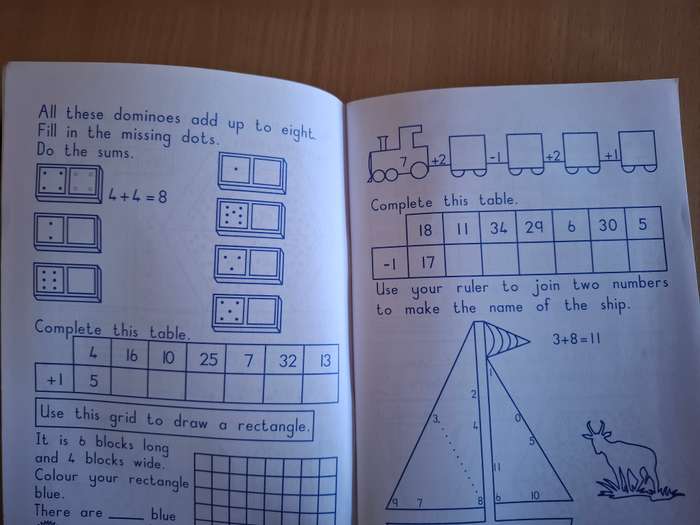 All these dominoes add up to eight.
Fill in the missing dots.
Do the sums.
4+4=8
Complete this table.
4 16 10 25 7 32 13
+1 5
Use this grid to draw a rectangle.
It is 6 blocks long
and 4 blocks wide.
Colour your rectangle
blue.
There are ____ blue
7 +2 -1 +2 +1
Complete this table.
18 11 34 29 6 30 5
-1 17
Use your ruler to join two numbers
to make the name of the ship.
3+8=11
1
2
3 4 0
5
11
9 7 8 6 10